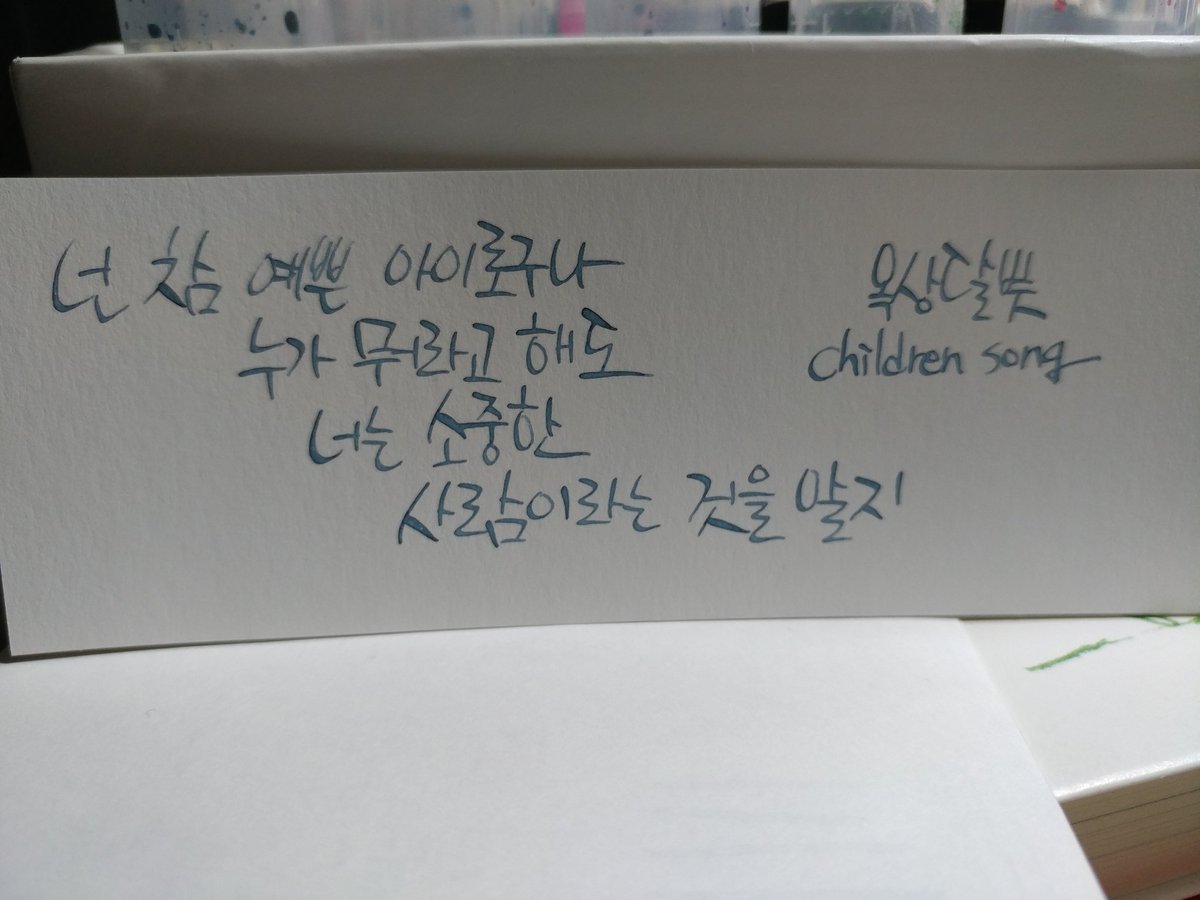 넌 참 예쁜 아이로구나
누가 뭐라고 해도
너는 소중한
사람이라는 것을 말지
옥상달빛
children song